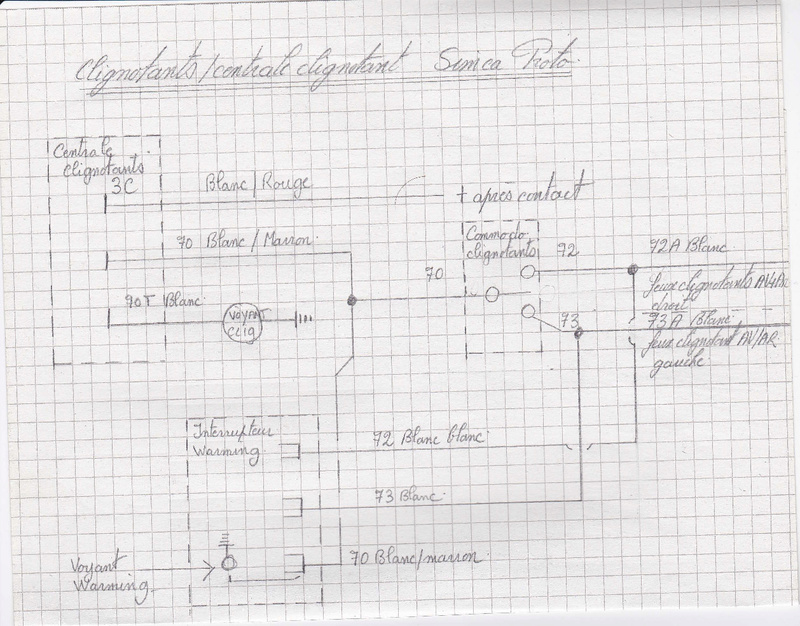 Clignotants/centrale clignotant Simca Proto.
Centrale
clignotants.
3C
Blanc/Rouge
+ après contact
70 Blanc/Marron.
Commodo
clignotants
72
72A Blanc
70
70T Blanc.
VOYANT
CLIG
feux clignotants AV/AR
droit
73
73A Blanc,
feux clignotant AV/AR
gauche
Interrupteur
Warming.
72 Blanc blanc.
73 Blanc.
70 Blanc/marron.
Voyant
Warming.